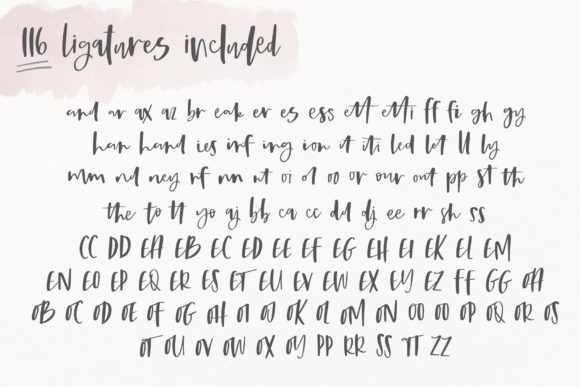 116 ligatures included
and ar ax az br eak er es ess ett etti ff fi gh gy
han hand ies inf ing ion it iti led lot ll ly
mm nd ney nf nn nt oi ol oo or our out pp st th
the to tt yo aj bb ca cc dd dj ee rr sh ss
CC DD EA EB EC ED EE EF EG EH EI EK EL EM
EN EO EP EQ ER ES ET EU EV EW EX EY EZ FF GG OA
OB OC OD OE OF OG OH OI OJ OK OL OM ON OO OO OP OQ OR OS
OT OU OV OW OX OY PP RR SS TT ZZ